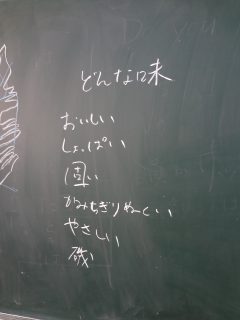 どんな味
おいしい
しょっぱい
固い
かみちぎりぬくい
やさしい
磯